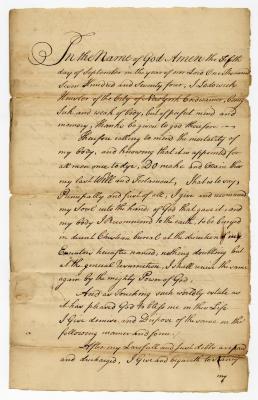 In the Name of God Amen the Fifth
day of September in the year of our Lord One thousand
Seven Hundred and Seventy four, I
of the City of New York being
Sick and weak of body, but of perfect mind and
memory, thanks be given to god therefore—
Therefore calling to mind the mortality of
my body, and knowing that it is appointed for
all men once to dye, DO make and Ordain this
my last Will and Testament, That is to say,
Principally and first of all, I give and recommend
my Soul into the hands of God that gave it; and
my body I Recommend to the earth, to be buryed
in decent Christian burial at the discretion of my
Executors hereafter named; nothing doubting but
at the general resurrection I shall receive the same
again by the mighty Power of God.
And as Touching such worldly estate as
it has pleased God to bless me in this Life
I Give demise and Dispose of the same in the
following manner and form.
After my Lawfull and just debts are paid
and discharged, I Give and bequeath to
my